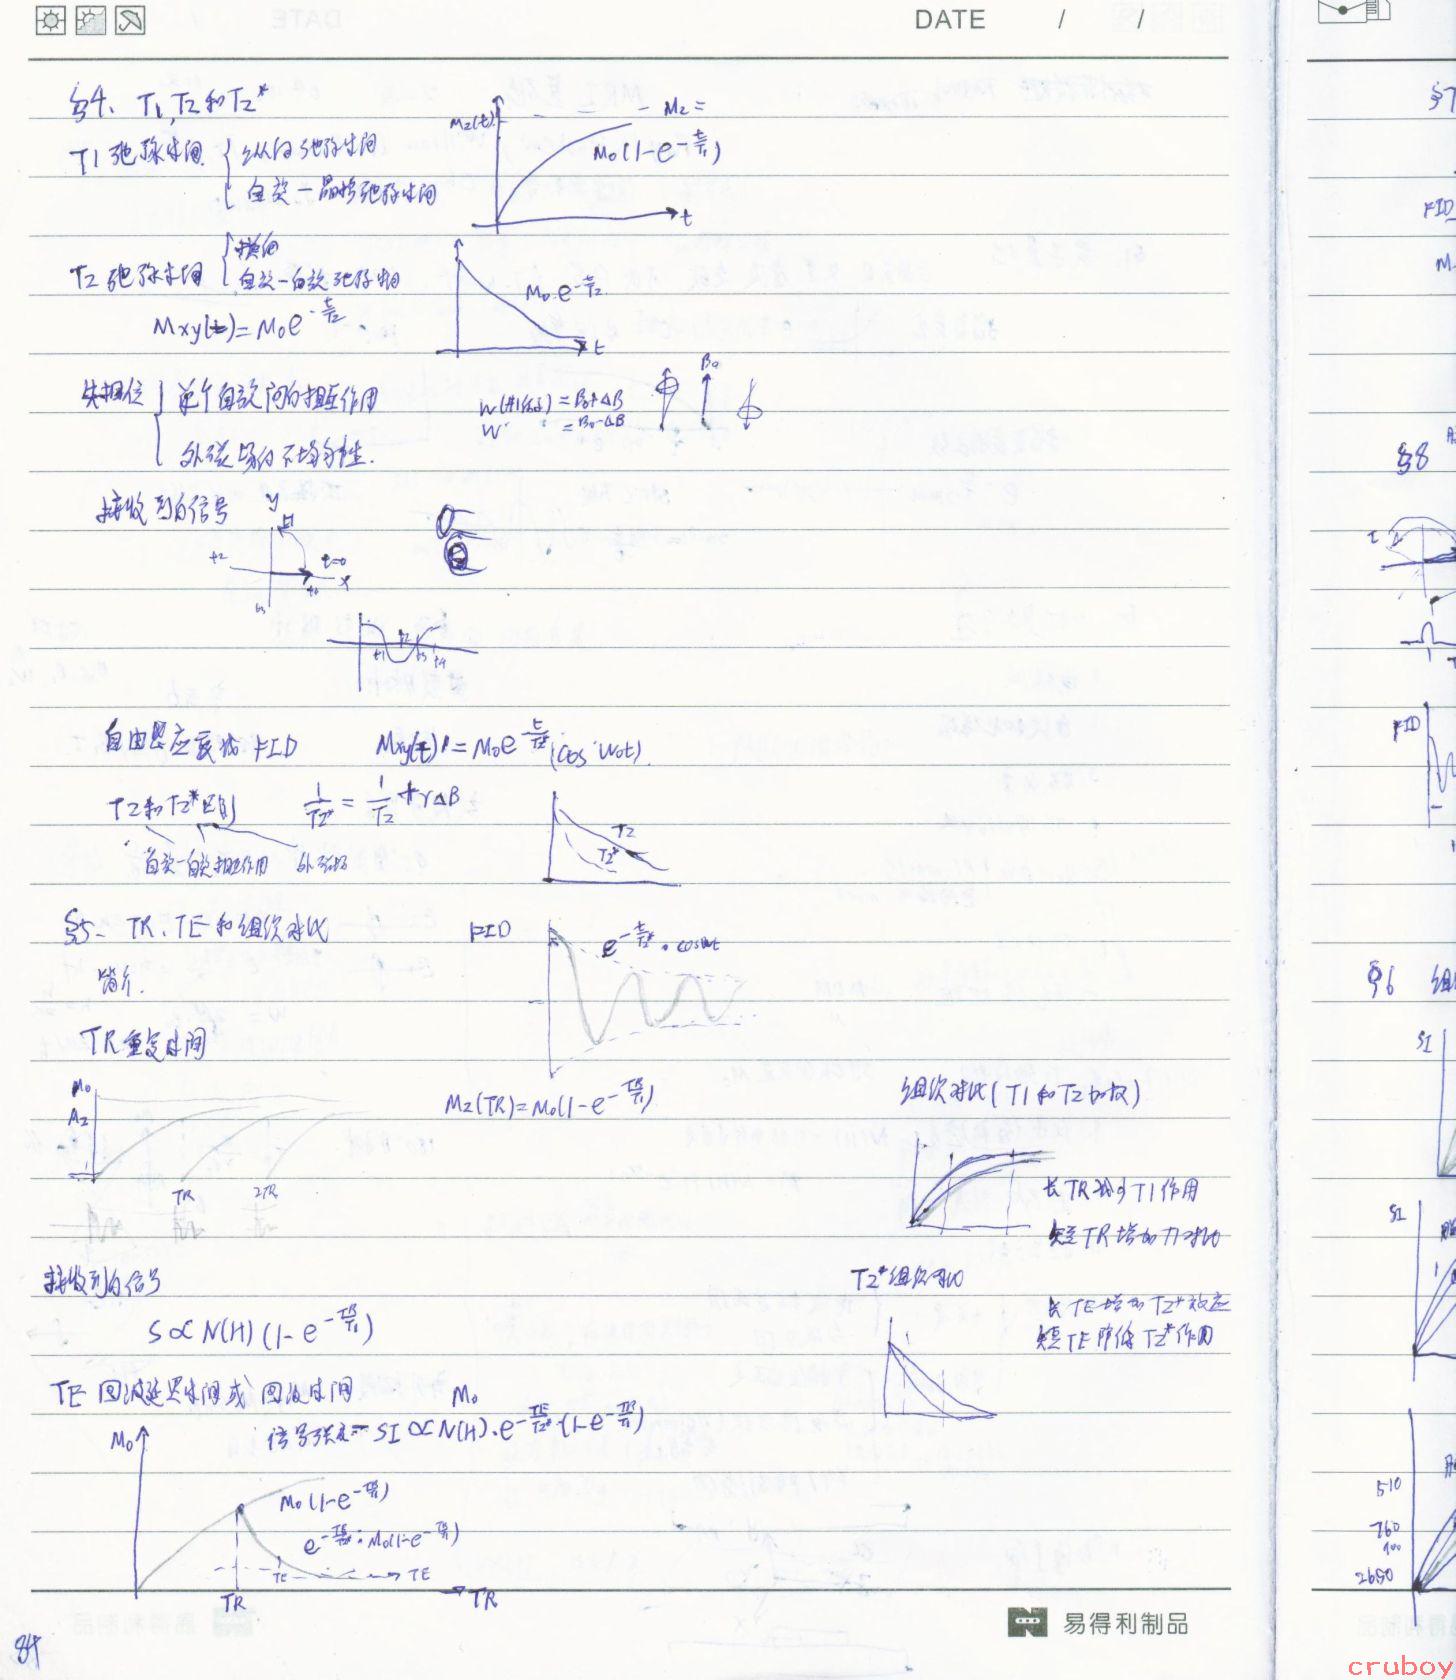 DATE / /
§4、T1,T2和T2*
T1弛豫时间 纵向弛豫时间
自旋一晶格弛豫时间
Mz(t) Mz =
M0(1-e^-t/T1)
t
T2弛豫时间 横向
自旋一自旋弛豫时间
Mxy(t)=M0e^-t/T2
M0·e^-t/T2
t
失相位 单个自旋间的相互作用
外磁场的不均匀性.
W = B0+ΔB
W = B0-ΔB
B0
接收到的信号
y
t1
t2 t=0
t0 x
t3
t1 t2 t3 t4
自由感应衰减 FID Mxy(t) = M0e (cos W0t)
T2和T2*区别 1/T2* = 1/T2 + γΔB
自旋一自旋相互作用 外磁场
T2
T2*
§5、TR、TE和组织对比
简介.
FID
e^-t/T2* · cosωt
TR重复时间
M0
Az
TR 2TR
Mz(TR)=M0(1-e^-TR/T1)
组织对比(T1和T2加权)
长TR减少T1作用
短TR增加T1对比
接收到的信号
S∝N(H)(1-e^-TR/T1)
T2*组织对比
长TE增加T2*效应
短TE降低T2*作用
TE回波延迟时间或回波时间
M0
信号强度 SI∝N(H)·e^-TE/T2*·(1-e^-TR/T1)
M0
M0(1-e^-TR/T1)
e^-TE/T2*·M0(1-e^-TR/T1)
TE TE
TR TR
易得利制品
84
§7
FID
§8
FID
§6 组
SI
SI
510
760
2650
cruboy